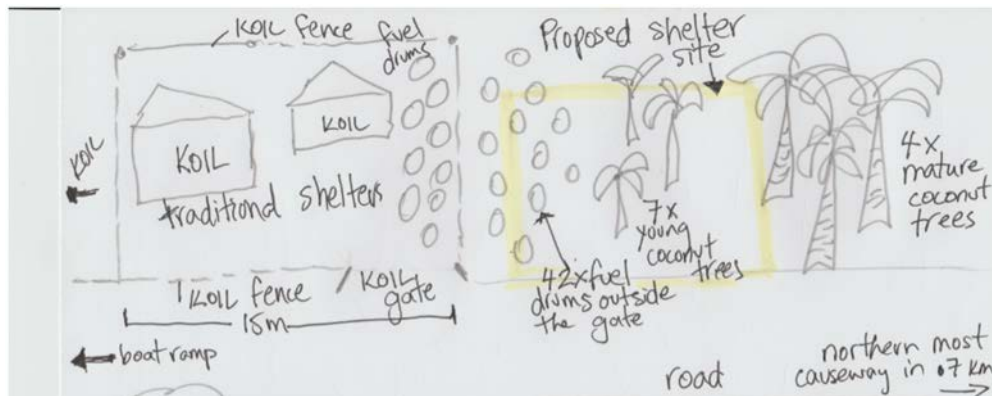 KOIL fence
fuel
drums
Proposed shelter
site
KOIL
KOIL
KOIL
traditional shelters
4x
mature
coconut
trees
7x
young
coconut
trees
42xfuel
drums outside
the gate
KOIL fence
KOIL
gate
15m
boat ramp
road
northern most
causeway in .7 km